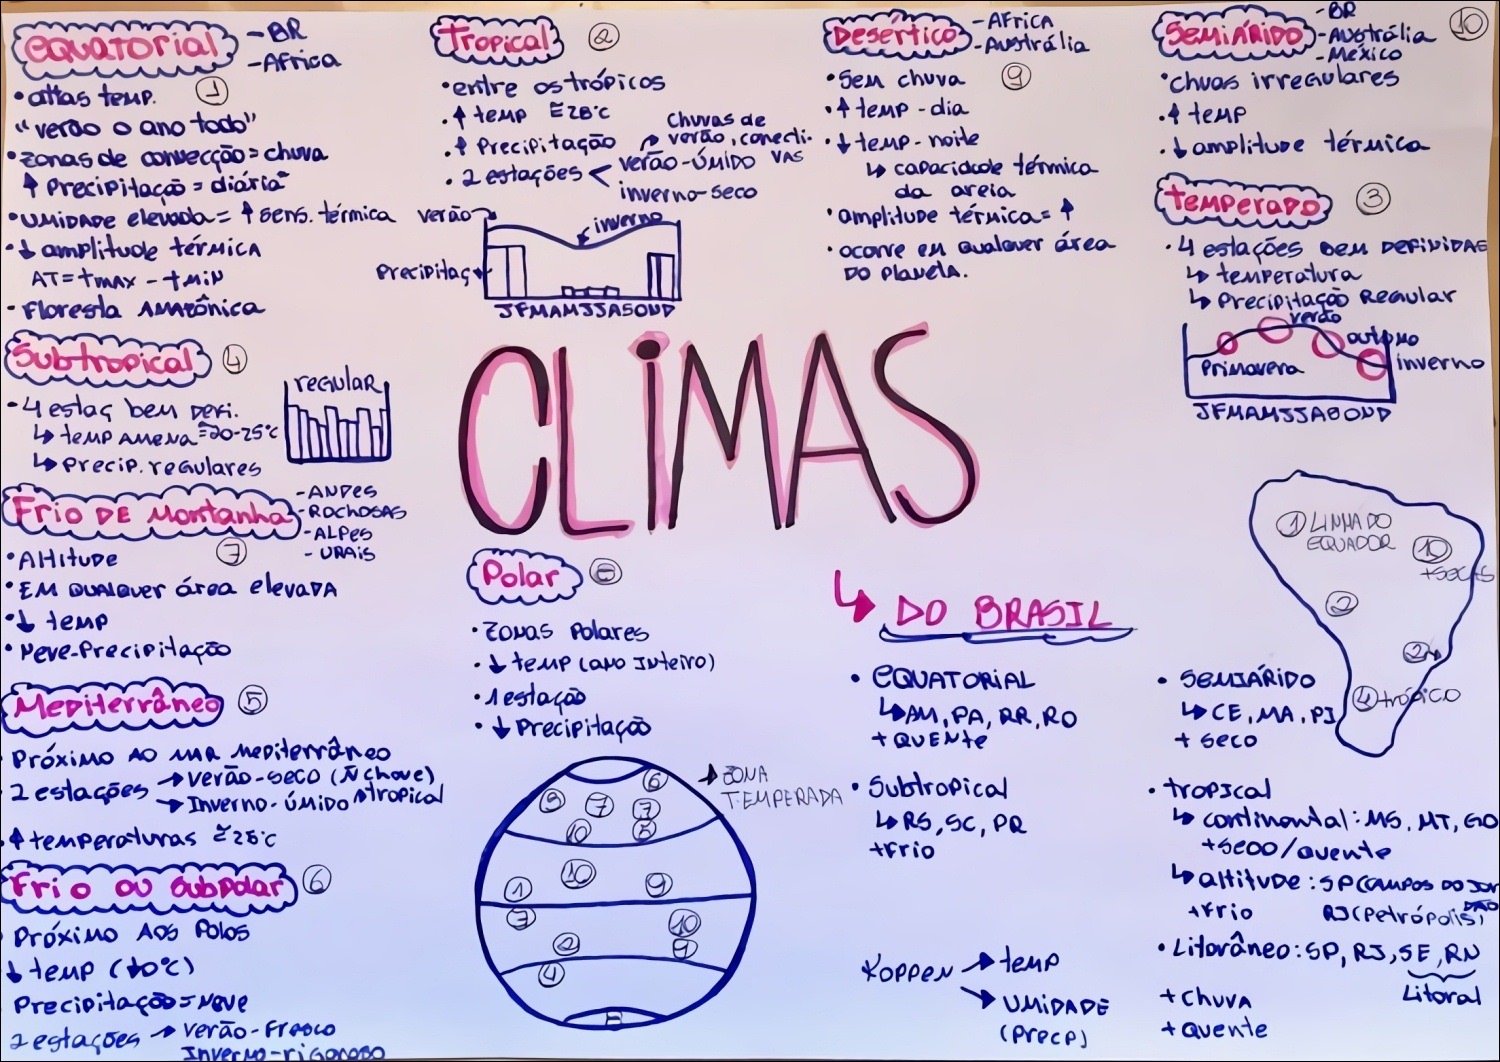 Equatorial
-BR
-África
①
• altas temp.
"verão o ano todo"
• zonas de convecção = chuva
↑ Precipitação = diária
• UMIDADE elevada = ↑ sens. térmica
• ↓ amplitude térmica
AT = tmax - tmin
• Floresta Amazônica
Tropical ②
• entre os trópicos
• ↑ temp ≅ 28°c
• ↑ Precipitação
• 2 estações < verão-ÚMIDO
inverno-seco
Chuvas de
verão, conecti-
vas
verão
inverno
Precipitaç
JFMAMJJASOND
Desértico
-África
-Austrália
⑨
• Sem chuva
• ↑ temp - dia
• ↓ temp - noite
↳ capacidade térmica
da areia
• amplitude térmica = ↑
• ocorre em qualquer área
do planeta.
Semiárido
-BR
-Austrália
-México
⑩
• chuas irregulares
• ↑ temp
• ↓ amplitude térmica
Temperado ③
• 4 estações bem definidas
↳ temperatura
↳ Precipitação Regular
verão
outono
inverno
Primavera
JFMAMJJASOND
Subtropical ④
• 4 estaç bem defi.
↳ temp amena ≅ 20-25°c
↳ precip. regulares
regular
CLIMAS
Frio de Montanha
-ANDES
-ROCHOSAS
-ALPES
-URAIS
⑦
• Altitude
• EM qualquer área elevada
• ↓ temp
• Neve-Precipitação
Mediterrâneo ⑤
Próximo ao mar mediterrâneo
2 estações → verão-seco (ñ chove)
→ Inverno-úmido
≠tropical
↑ temperaturas ≅ 25°c
Frio ou Subpolar ⑥
Próximo aos Polos
↓ temp (↓0°c)
Precipitação = Neve
2 estações → verão-fresco
Inverno-rigoroso
Polar ⑧
• Zonas Polares
• ↓ temp (ano inteiro)
• 1 estação
• ↓ Precipitação
→ ZONA
TEMPERADA
⑥
③ ⑦ ⑦
⑩ ⑤
① ⑩ ⑨
⑦ ⑩
② ⑨
④
8
↳ DO BRASIL
• EQUATORIAL
↳ AM, PA, RR, RO
+ QUENTE
• Subtropical
↳ RS, SC, PR
+ Frio
KOPPEN → temp
→ UMIDADE
(Precp)
① LINHA DO
EQUADOR
⑩
+secas
②
②
④ trópico
• SEMIÁRIDO
↳ CE, MA, PI
+ seco
• tropical
↳ continental: MS, MT, GO
+ seco/quente
↳ altitude: SP (Campos do Jor
dão
+ Frio RJ (Petrópolis)
• Litorâneo: SP, RJ, SE, RN
Litoral
+ Chuva
+ Quente